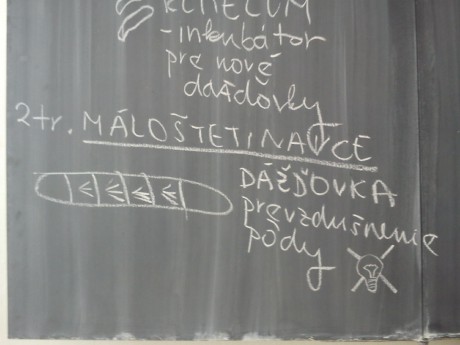 -inkubátor
pre nové
dážďovky
2tr. MÁLOŠTETINAVCE
DÁŽĎOVKA
prevzdušnenie
pôdy